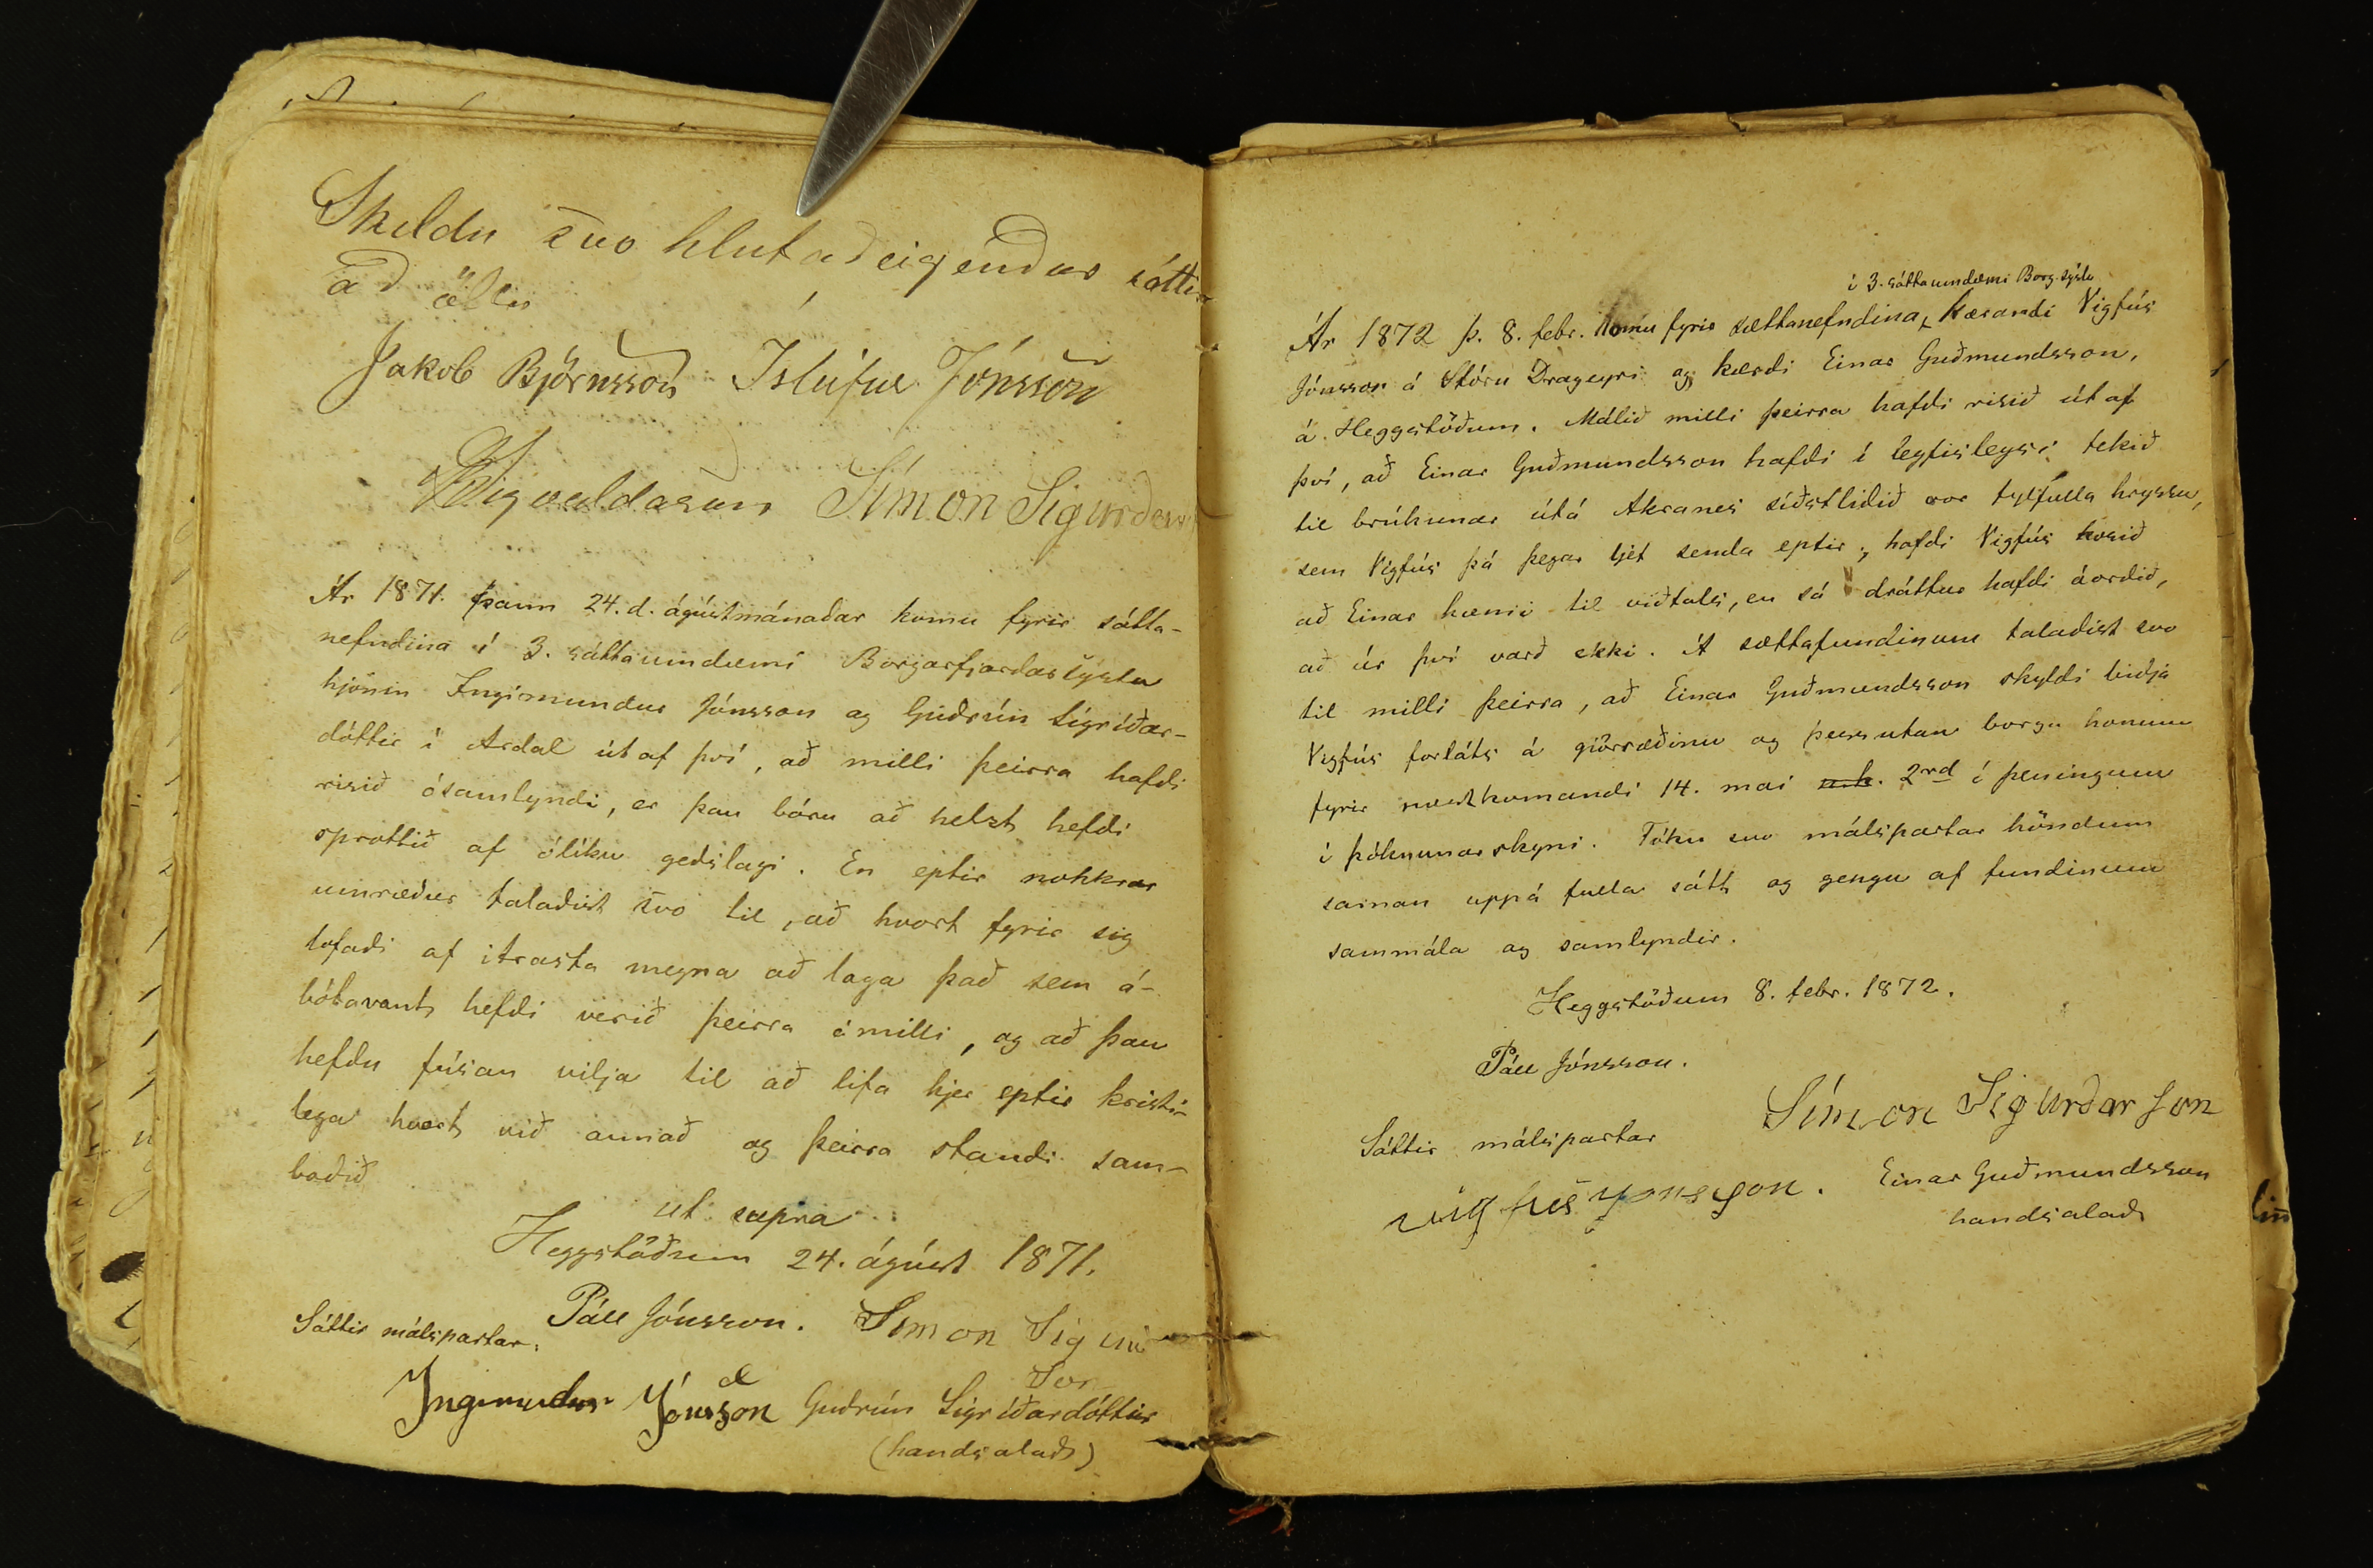 Skildu svo hlutaðeigendur sáttir
að öllu
Jakob Björnsson Ísleifur Jónsson
Símon Sigurðsson
Ár 1871. þann 24. d. ágústmánaðar komu fyrir sátta-
nefndina í 3. sáttaumdæmi Borgarfjarðarsýslu
hjónin Ingimundur Jónsson og Guðrún Sigríðar-
dóttir í Árdal út af því, að milli þeirra hafði
risið ósamlyndi, er þau báru að helzt hefði
sprottið af ólíku geðslagi. En eptir nokkrar
umræður talaðist svo til, að hvort fyrir sig
lofaði af ítrasta megna að laga það sem á-
bótavant hefði verið þeirra ámilli, og að þau
hefðu fúsan vilja til að lifa hjer eptir kristi-
lega hvort við annað og þeirra standi sam-
boðið
ut supra
Heggstöðum 24. ágúst 1871.
Páll Jónsson. Símon Sigurðarson
Sáttir málspartar.
Ingimundur Jónsson Guðrún Sigríðardóttir
(handsalað)
í 3. sáttaumdæmi Borg.sýslu
Ár 1872 þ. 8. febr. komu fyrir sættanefndina, kærandi Vigfús
Jónsson á Stóru Drageyri og kærði Einar Guðmundsson,
á Heggstöðum. Málið milli þeirra hafði risið út af
því, að Einar Guðmundsson hafði í leyfisleysi tekið
til brúkunar útá Akranes síðstliðið vor fylfulla hryssu,
sem Vigfús þá þegar ljet senda eptir; hafði Vigfús kosið
að Einar kæmi til viðtals, en sá dráttur hafði áorðið,
að úr því varð ekki. Á sættafundinum talaðist svo
til milli þeirra, að Einar Guðmundsson skyldi biðja
Vigfús forláts á gjörræðinu og þess utan borga honum
fyrir næstkomandi 14. mai n.k. 2rd í peningum
í þóknunarskyni. Tóku svo málspartar höndum
saman uppá fulla sátt og gengu af fundinum
sammála og samlyndir.
Heggstöðum 8. febr. 1872.
Páll Jónsson.
Símon Sigurðarson
Sáttir málspartar
Vigfús Jónsson. Einar Guðmundsson
handsalað